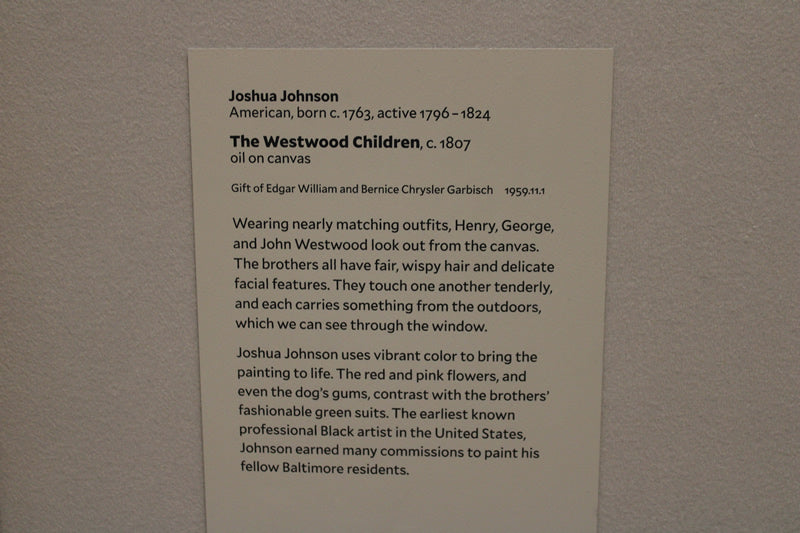 Joshua Johnson
American, born c. 1763, active 1796–1824
The Westwood Children, c. 1807
oil on canvas
Gift of Edgar William and Bernice Chrysler Garbisch 1959.11.1
Wearing nearly matching outfits, Henry, George,
and John Westwood look out from the canvas.
The brothers all have fair, wispy hair and delicate
facial features. They touch one another tenderly,
and each carries something from the outdoors,
which we can see through the window.
Joshua Johnson uses vibrant color to bring the
painting to life. The red and pink flowers, and
even the dog's gums, contrast with the brothers'
fashionable green suits. The earliest known
professional Black artist in the United States,
Johnson earned many commissions to paint his
fellow Baltimore residents.